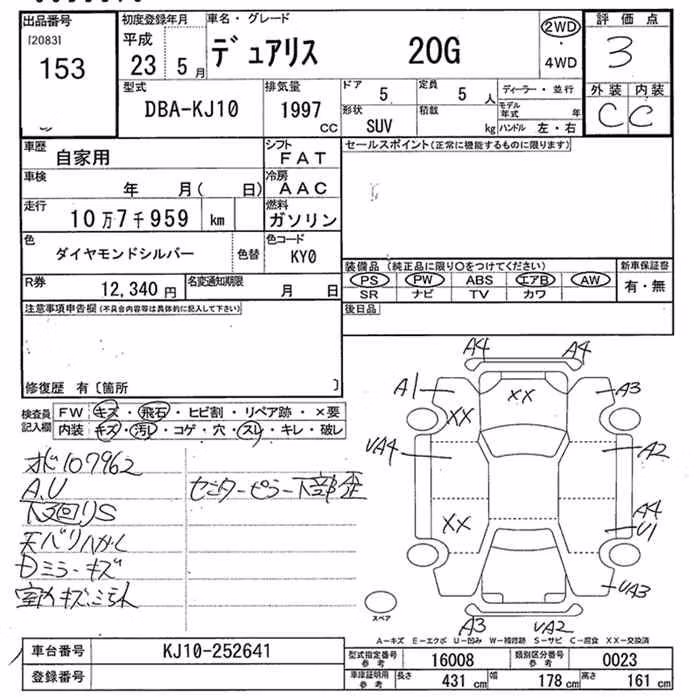 出品番号
[2083]
153
初度登録年月
平成
23年5月
車名・グレード
デュアリス 20G
2WD
・
4WD
評価点
3
外装 内装
C C
型式
DBA-KJ10
排気量
1997 CC
ドア 5
定員 5 人
形状 SUV
積載 kg
ディーラー・並行
モデル年式 年
ハンドル 左・右
車歴 自家用
シフト FAT
車検 年 月( 日)
冷房 AAC
走行 10万7千959 km
燃料 ガソリン
色 ダイヤモンドシルバー 色替
色コード KY0
R券 12,340 円
名変通知期限 月 日
セールスポイント(正常に機能するものに限ります)
装備品 (純正品に限り○をつけてください)
PS PW ABS エアB AW
SR ナビ TV カワ
新車保証書
有・無
後日品
注意事項申告欄(不具合内容等は具体的に記入して下さい)
修復歴 有〔箇所 〕
検査員記入欄
FW キズ・飛石・ヒビ割・リペア跡・×要
内装 キズ・汚れ・コゲ・穴・スレ・キレ・破レ
107962
A,U
下廻りS
センターピラー下部歪
天バリハガレ
ミラーキズ
A4 A4
A1 XX A3
XX
UA4 A2
XX A4
U1
UA3
A3 UA2
スペア
A-キズ E-エクボ U-凹み W-補修跡 S-サビ C-腐食 XX-交換済
車台番号 KJ10-252641
登録番号
型式指定番号 参考 16008
類別区分番号 参考 0023
車庫証明用 参考 長さ 431 cm 幅 178 cm 高さ 161 cm